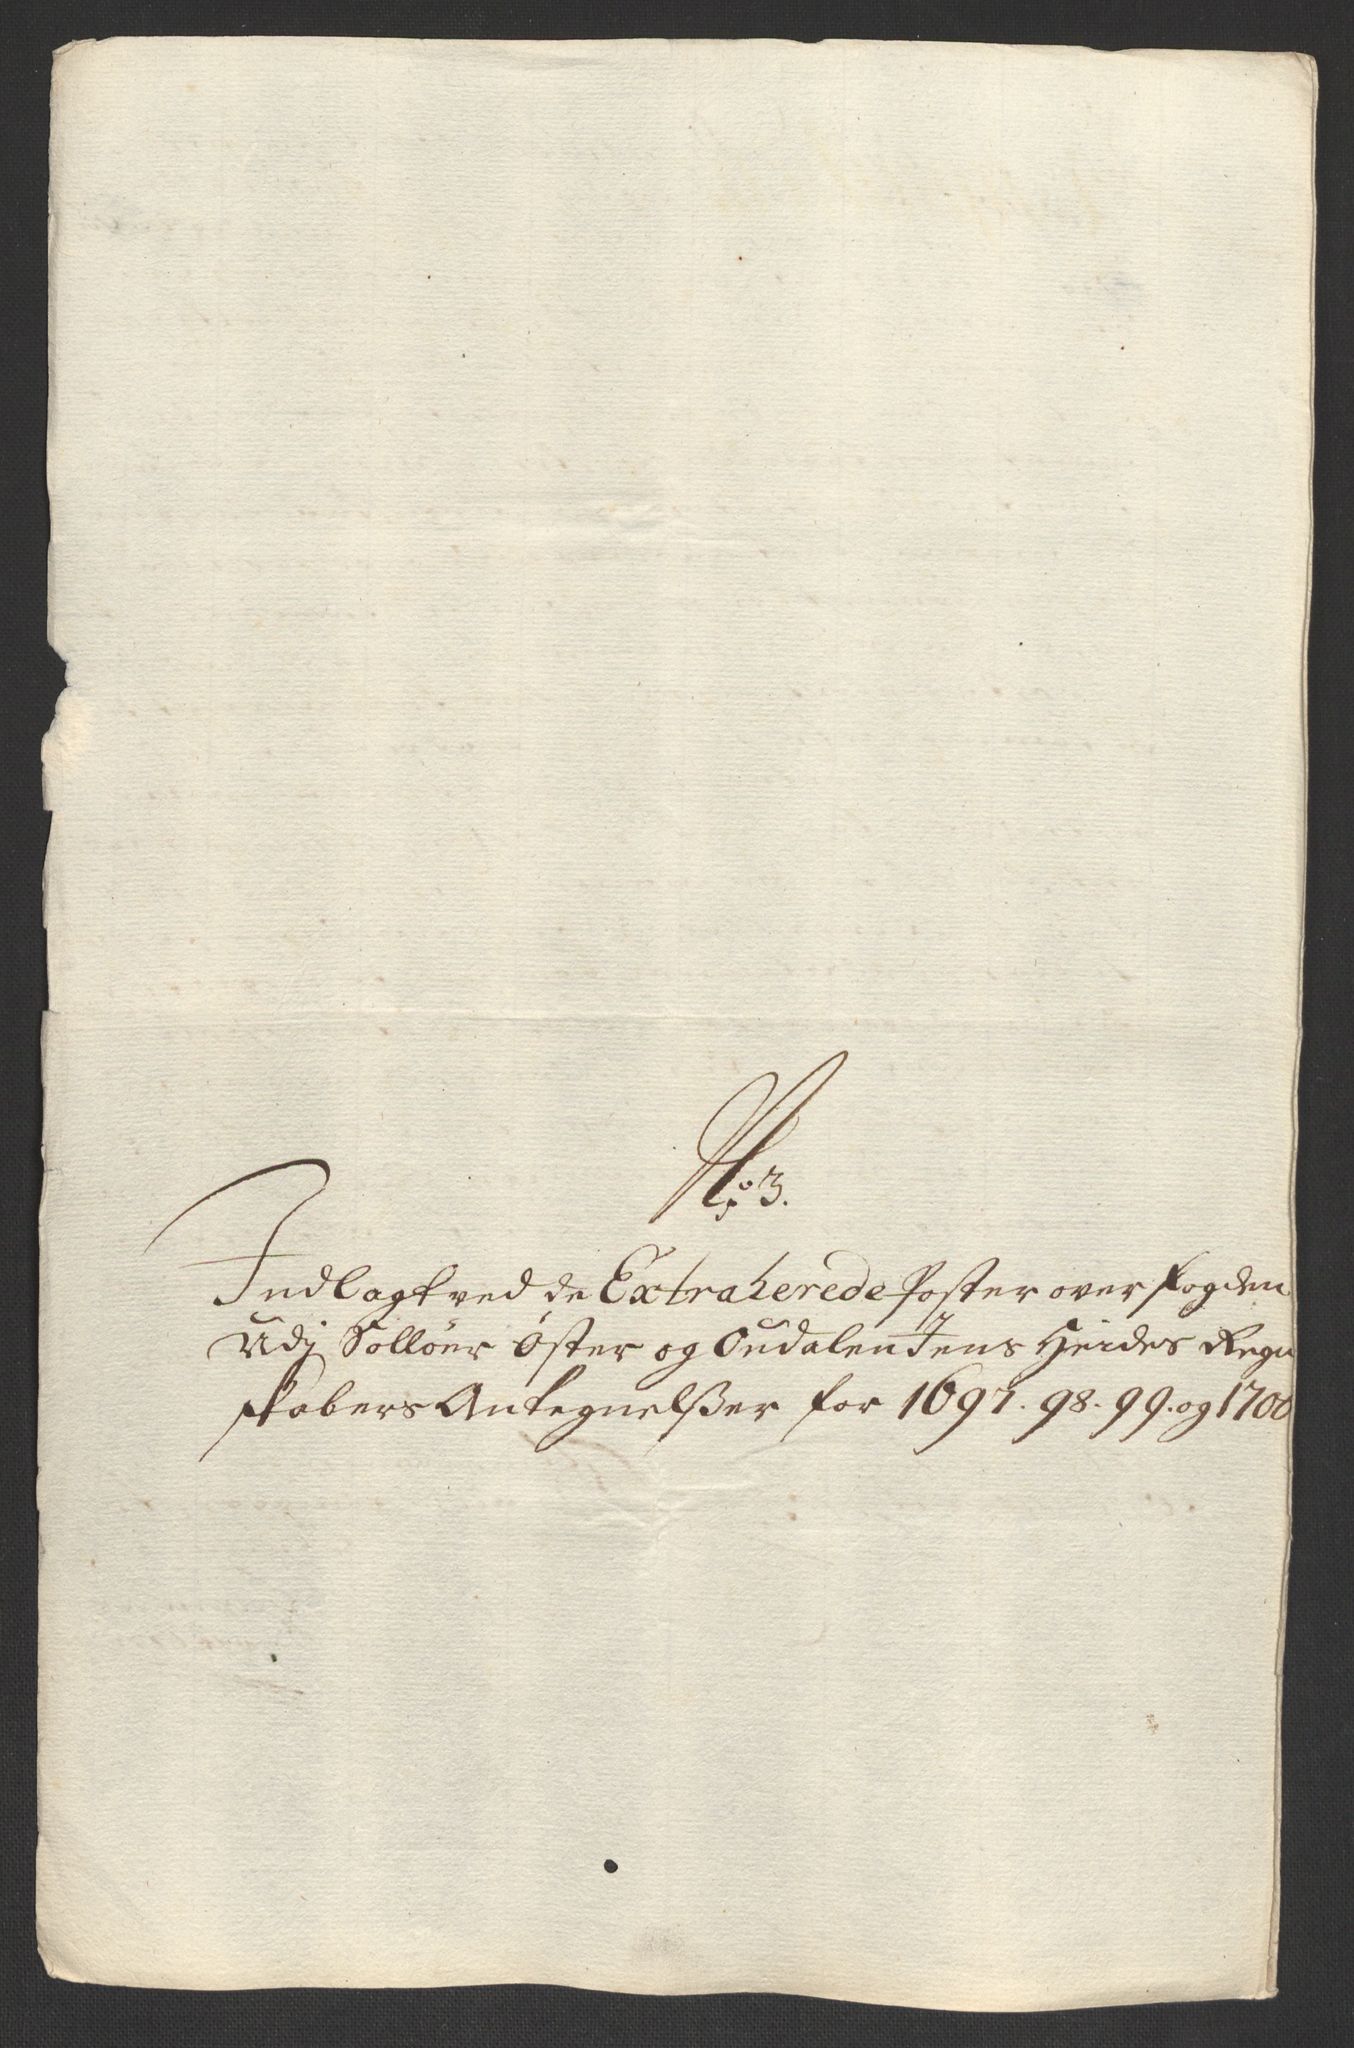 No: 3.
Indlagt ved de Extraherede Poster over fogden
Udj Sollöer Öster og Oudalen Jens Heides Regn
skabers Antegnelßer for 1697. 98. 99. og 1700